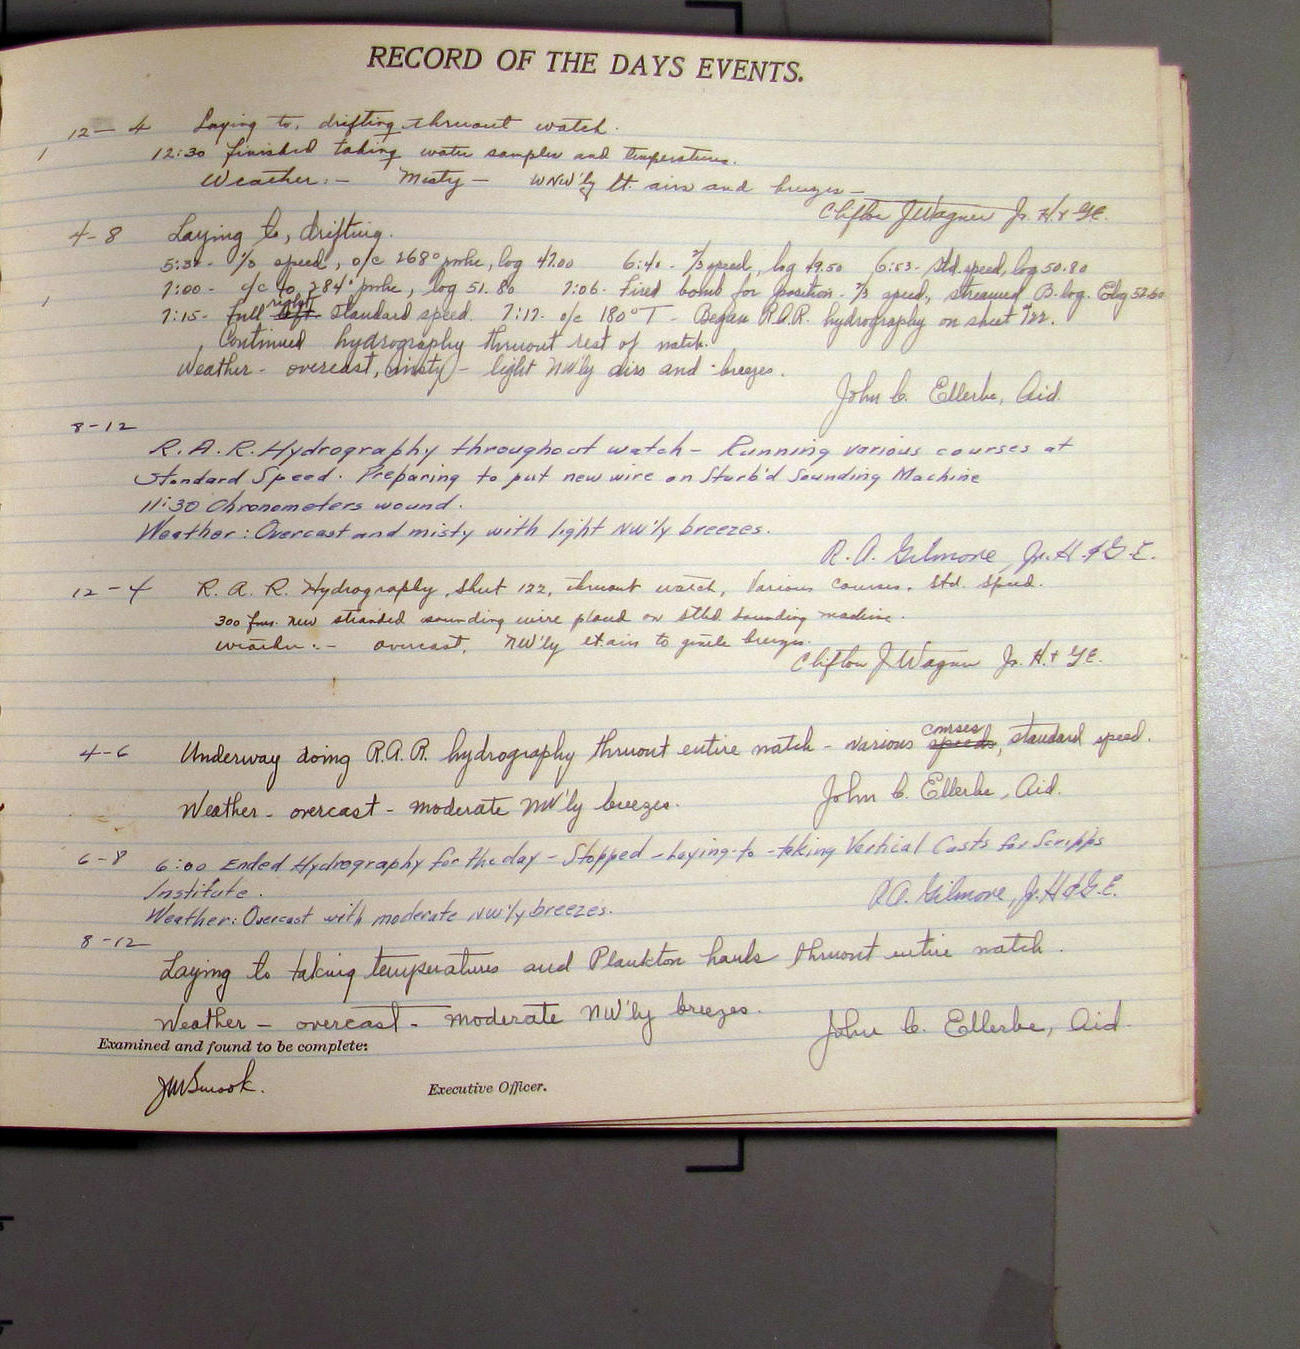 RECORD OF THE DAYS EVENTS.
12 – 4 Laying to, drifting thruout watch.
12:30 finished taking water samples and temperatures.
Weather:– Misty – WNW'ly lt. airs and breezes –
Clifton J. Wagner Jr. H. & G.E.
4-8 Laying to, drifting.
5:32- 1/3 speed, o/c 268° pmhc, log 47.00 6:40- 2/3 speed, log 49.50 6:53- Std. speed, log 50.80
7:00- c/c to 284° pmhc, log 51.80 7:06- Fired bomb for position- 1/3 speed, streamed B-log. Elog 52.60
right
7:15- full left standard speed. 7:17- o/c 180° T - Began R.A.R. hydrography on sheet 122.
Continued hydrography thruout rest of watch.
Weather - overcast, (misty) - light NW'ly airs and breezes.
John C. Ellerbe, Aid.
8-12
R.A.R. Hydrography throughout watch - Running various courses at
Standard Speed. Preparing to put new wire on Starb'd Sounding Machine
11:30 Chronometers wound.
Weather: Overcast and misty with light NW'ly breezes.
R. A. Gilmore, Jr. H. & G. E.
12-4 R. A. R. Hydrography, Sheet 122, thruout watch, Various courses, Std. speed.
300 fms. new stranded sounding wire placed on stbd. sounding machine.
weather:- overcast, NW'ly lt airs to gentle breezes.
Clifton J. Wagner Jr. H. & G.E.
courses
4-6 Underway doing R.A.R. hydrography thruout entire watch - various speeds, standard speed.
Weather - overcast - moderate NW'ly breezes.
John C. Ellerbe, Aid.
6-8 6:00 Ended Hydrography for the day - Stopped - Laying-to - taking Vertical Casts for Scripps
Institute.
R.A. Gilmore, Jr. H & G.E.
Weather: Overcast with moderate NW'ly breezes.
8-12
Laying to taking temperatures and Plankton hauls thruout entire watch.
Weather - overcast - moderate NW'ly breezes.
John C. Ellerbe, Aid.
Examined and found to be complete:
JM Smook.
Executive Officer.